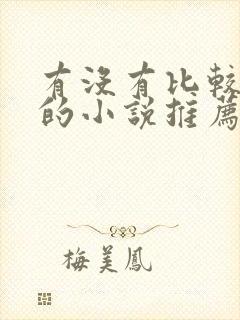 有沒有比較
的小說推薦
梅美鳳